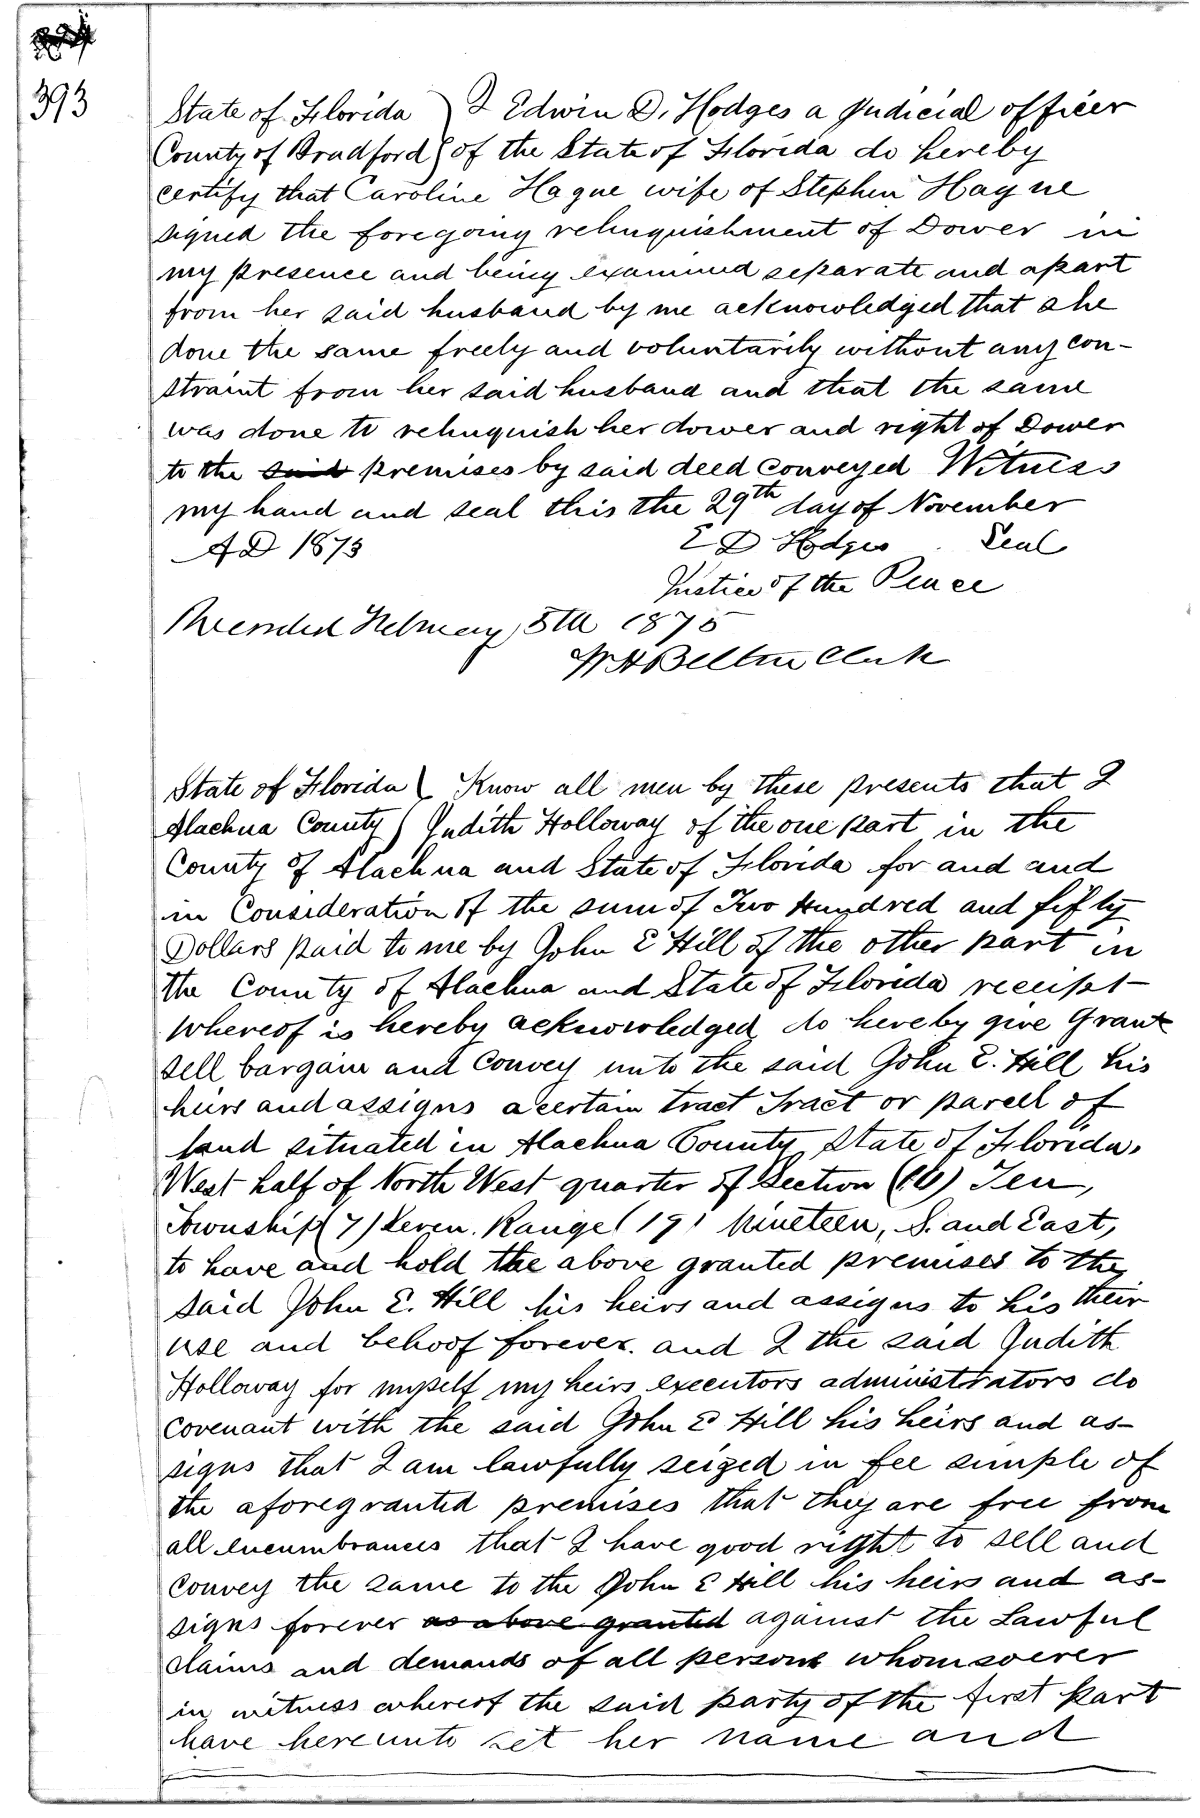 393
State of Florida ) I Edwin D. Hodges a Judicial officer
County of Bradford ) of the State of Florida do hereby
certify that Caroline Hague wife of Stephen Hague
signed the foregoing relinquishment of Dower in
my presence and being examined separate and apart
from her said husband by me acknowledged that she
done the same freely and voluntarily without any con-
straint from her said husband and that the same
was done to relinquish her dower and right of Dower
to the said premises by said deed conveyed Witness
my hand and seal this the 29th day of November
AD 1873 E D Hodges Seal
Justice of the Peace
Recorded February 5th 1875
W H Belton Clerk
State of Florida ( Know all men by these presents that I
Alachua County ) Judith Holloway of the one part in the
County of Alachua and State of Florida for and and
in Consideration of the sum of Two Hundred and fifty
Dollars paid to me by John E Hill of the other part in
the County of Alachua and State of Florida receipt
whereof is hereby acknowledged do hereby give Grant
sell bargain and Convey unto the said John E. Hill his
heirs and assigns a certain tract Tract or parcell of
land situated in Alachua County State of Florida.
West half of North West quarter of Section (10) Ten,
Township (7) Seven. Range (19) Nineteen, S. and East,
to have and hold the above granted premises to the
said John E. Hill his heirs and assigns to his their
use and behoof forever. and I the said Judith
Holloway for myself my heirs executors administrators do
covenant with the said John E Hill his heirs and as-
signs that I am lawfully seized in fee simple of
the aforegranted premises that they are free from
all encumbrances that I have good right to sell and
convey the same to the John E Hill his heirs and as-
signs forever as above granted against the Lawful
claims and demands of all persons whomsoever
in witness whereof the said party of the first part
have hereunto set her name and